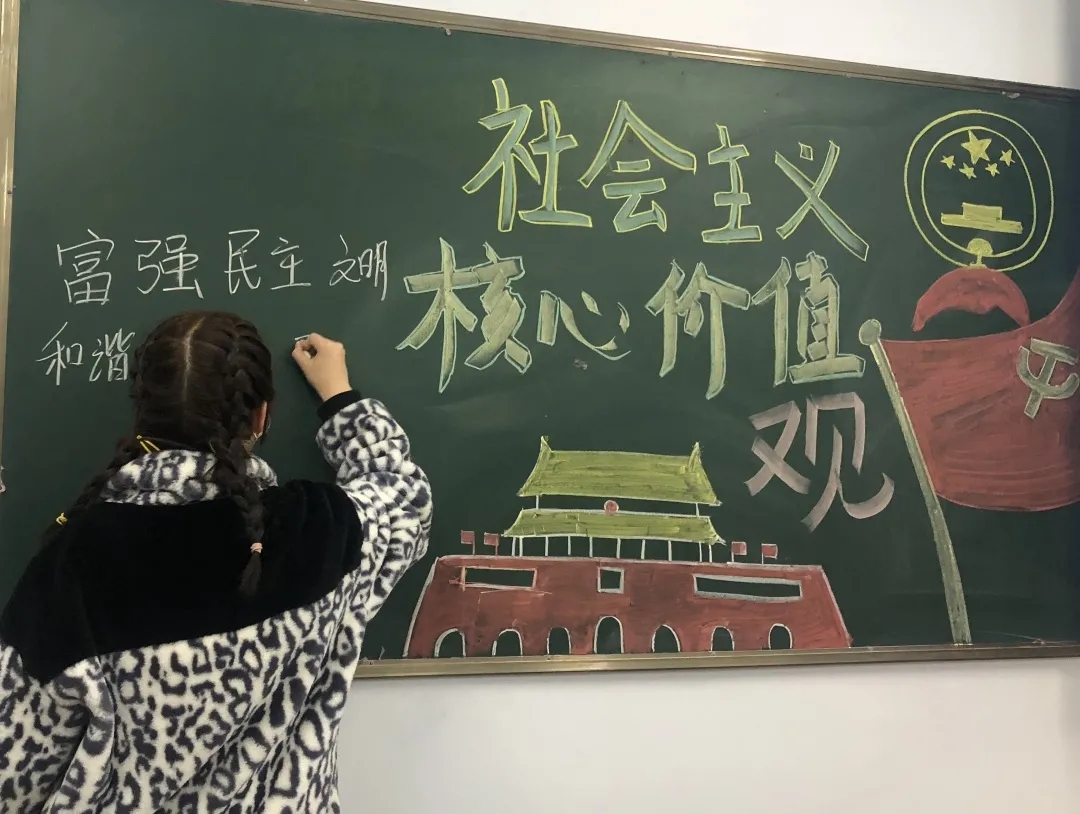 社会主义
核心价值
观
富强 民主 文明
和谐